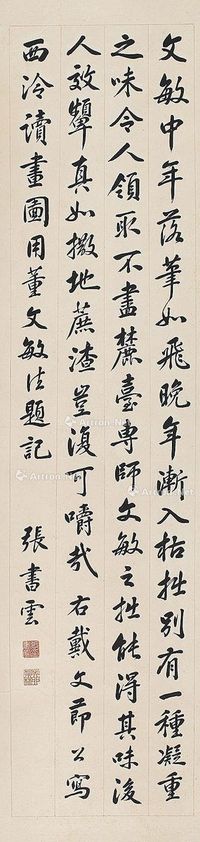 文敏中年落筆如飛晚年漸入枯拙別有一種凝重
之味令人領取不盡麓臺專師文敏之拙能得其味後
人效顰真如撒地蔗渣豈復可嚼哉右戴文節公寫
西泠讀畫圖用董文敏法題記
張書雲